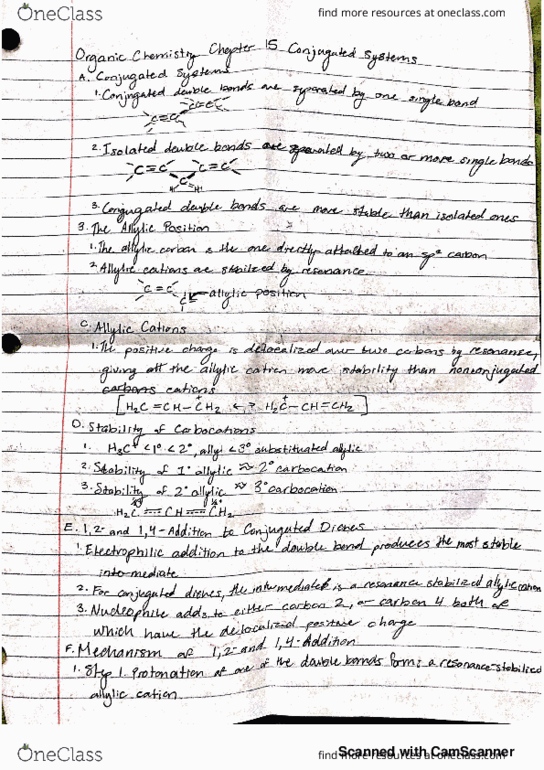 OneClass
find more resources at oneclass.com
Organic Chemistry Chapter 15 Conjugated Systems
A. Conjugated Systems
1. Conjugated double bonds are separated by one single bond
C=C
C=C
2. Isolated double bonds are separated by two or more single bonds
C=C C=C
C
H H
3. Conjugated double bonds are more stable than isolated ones
3. The Allylic Position
1. The allylic carbon is the one directly attached to an sp² carbon
2. Allylic cations are stabilized by resonance
C=C
C allylic position
C. Allylic Cations
1. The positive charge is delocalized over two carbons by resonance,
giving off the allylic cation more stability than nonconjugated
carbons cations
[H₂C=CH-C⁺H₂ <-> H₂C⁺-CH=CH₂]
D. Stability of Carbocations
1. H₃C⁺ <1° <2°, allyl <3° substituated alylic
2. Stability of 1° allylic ≈ 2° carbocation
3. Stability of 2° allylic ≈ 3° carbocation
H₂C == CH == CH₂
E. 1,2- and 1,4-Addition to Conjugated Dienes
1. Electrophilic addition to the double bond produces the most stable
intermediate
2. For conjugated dienes, the intermediate is a resonance stabilized allylic cation
3. Nucleophile adds to either carbon 2, or carbon 4 both of
which have the delocalized positive charge
F. Mechanism of 1,2- and 1,4-Addition
1. Step 1. Protonation of one of the double bonds forms a resonance-stabilized
allylic cation
OneClass
find more resources at oneclass.com
Scanned with CamScanner